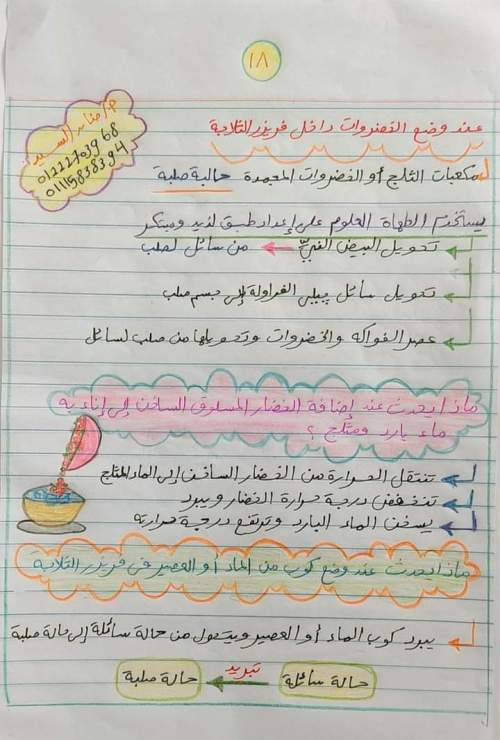 ١٨
م/ صفاء السيد
01222703968
01115838394
عند وضع الخضروات داخل فريزر الثلاجة
مكعبات الثلج أو الخضروات المجمدة حالة صلبة
يستخدم الطهاة العلوم على إعداد طبق لذيد ومبتكر
تحويل البيض النيّ من سائل لصلب
تحويل سائل چيلى الفراولة إلى جسم صلب
عصر الفواكه والخضروات وتحويلها من صلب لسائل
ماذا يحدث عند إضافة الخضار المسلوق الساخن إلى إناء به
ماء بارد ومثلج ؟
تنتقل الحرارة من الخضار الساخن إلى الماء المثلج
تنخفض درجة حرارة الخضار ويبرد
يسخن الماء البارد وترتفع درجة حرارته
ماذا يحدث عند وضع كوب من الماء أو العصير فى فريزر الثلاجة
يبرد كوب الماء أو العصير ويتحول من حالة سائلة إلى حالة صلبة
حالة سائلة تبريد حالة صلبة